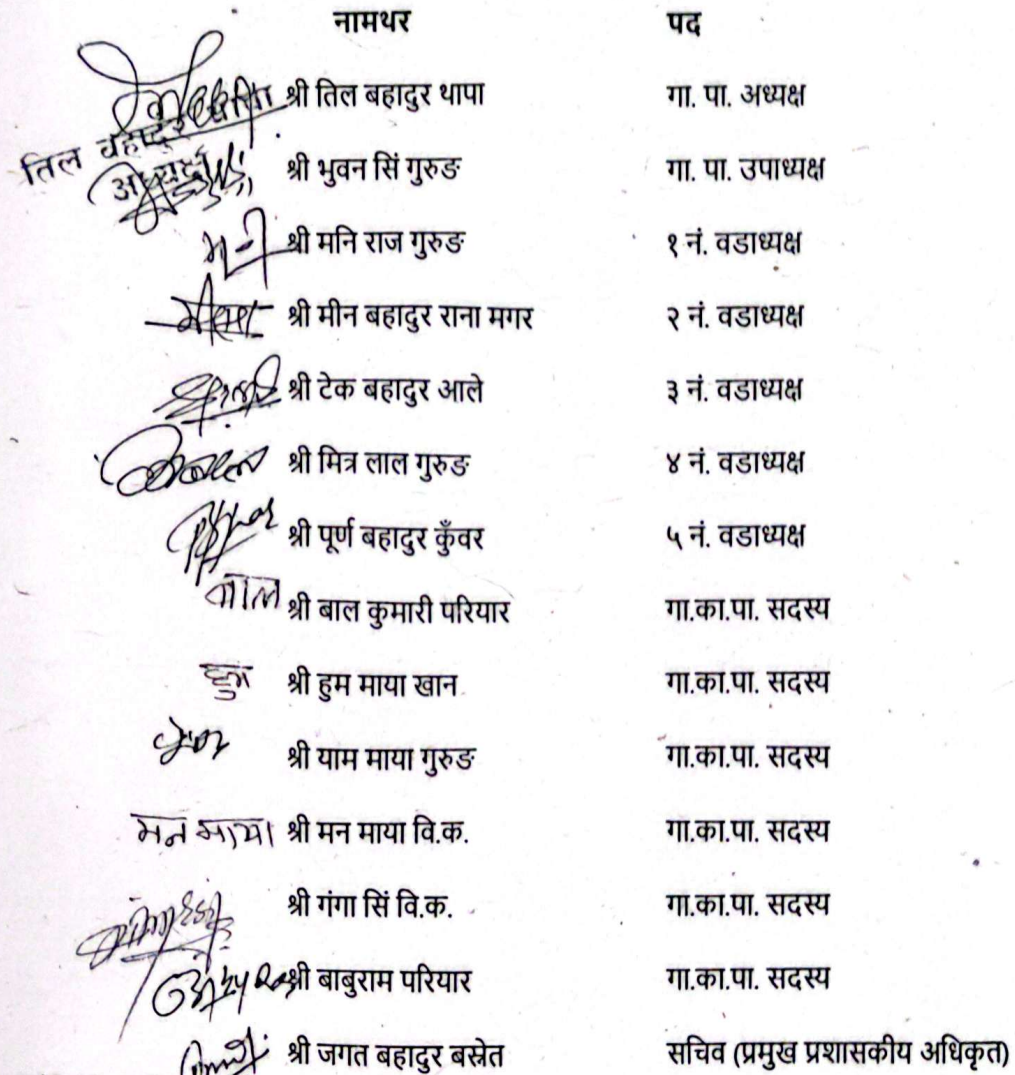 नामथर पद
श्री तिल बहादुर थापा गा. पा. अध्यक्ष
तिल बहादुर थापा
अध्यक्ष
श्री भुवन सिं गुरुङ गा. पा. उपाध्यक्ष
श्री मनि राज गुरुङ १ नं. वडाध्यक्ष
श्री मीन बहादुर राना मगर २ नं. वडाध्यक्ष
श्री टेक बहादुर आले ३ नं. वडाध्यक्ष
श्री मित्र लाल गुरुङ ४ नं. वडाध्यक्ष
श्री पूर्ण बहादुर कुँवर ५ नं. वडाध्यक्ष
बाल श्री बाल कुमारी परियार गा.का.पा. सदस्य
हुम श्री हुम माया खान गा.का.पा. सदस्य
श्री याम माया गुरुङ गा.का.पा. सदस्य
मन माया श्री मन माया वि.क. गा.का.पा. सदस्य
श्री गंगा सिं वि.क. गा.का.पा. सदस्य
श्री बाबुराम परियार गा.का.पा. सदस्य
श्री जगत बहादुर बस्नेत सचिव (प्रमुख प्रशासकीय अधिकृत)